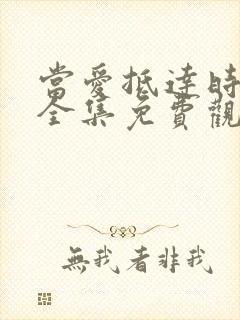 當愛抵達時
全集免費觀
無我者非我